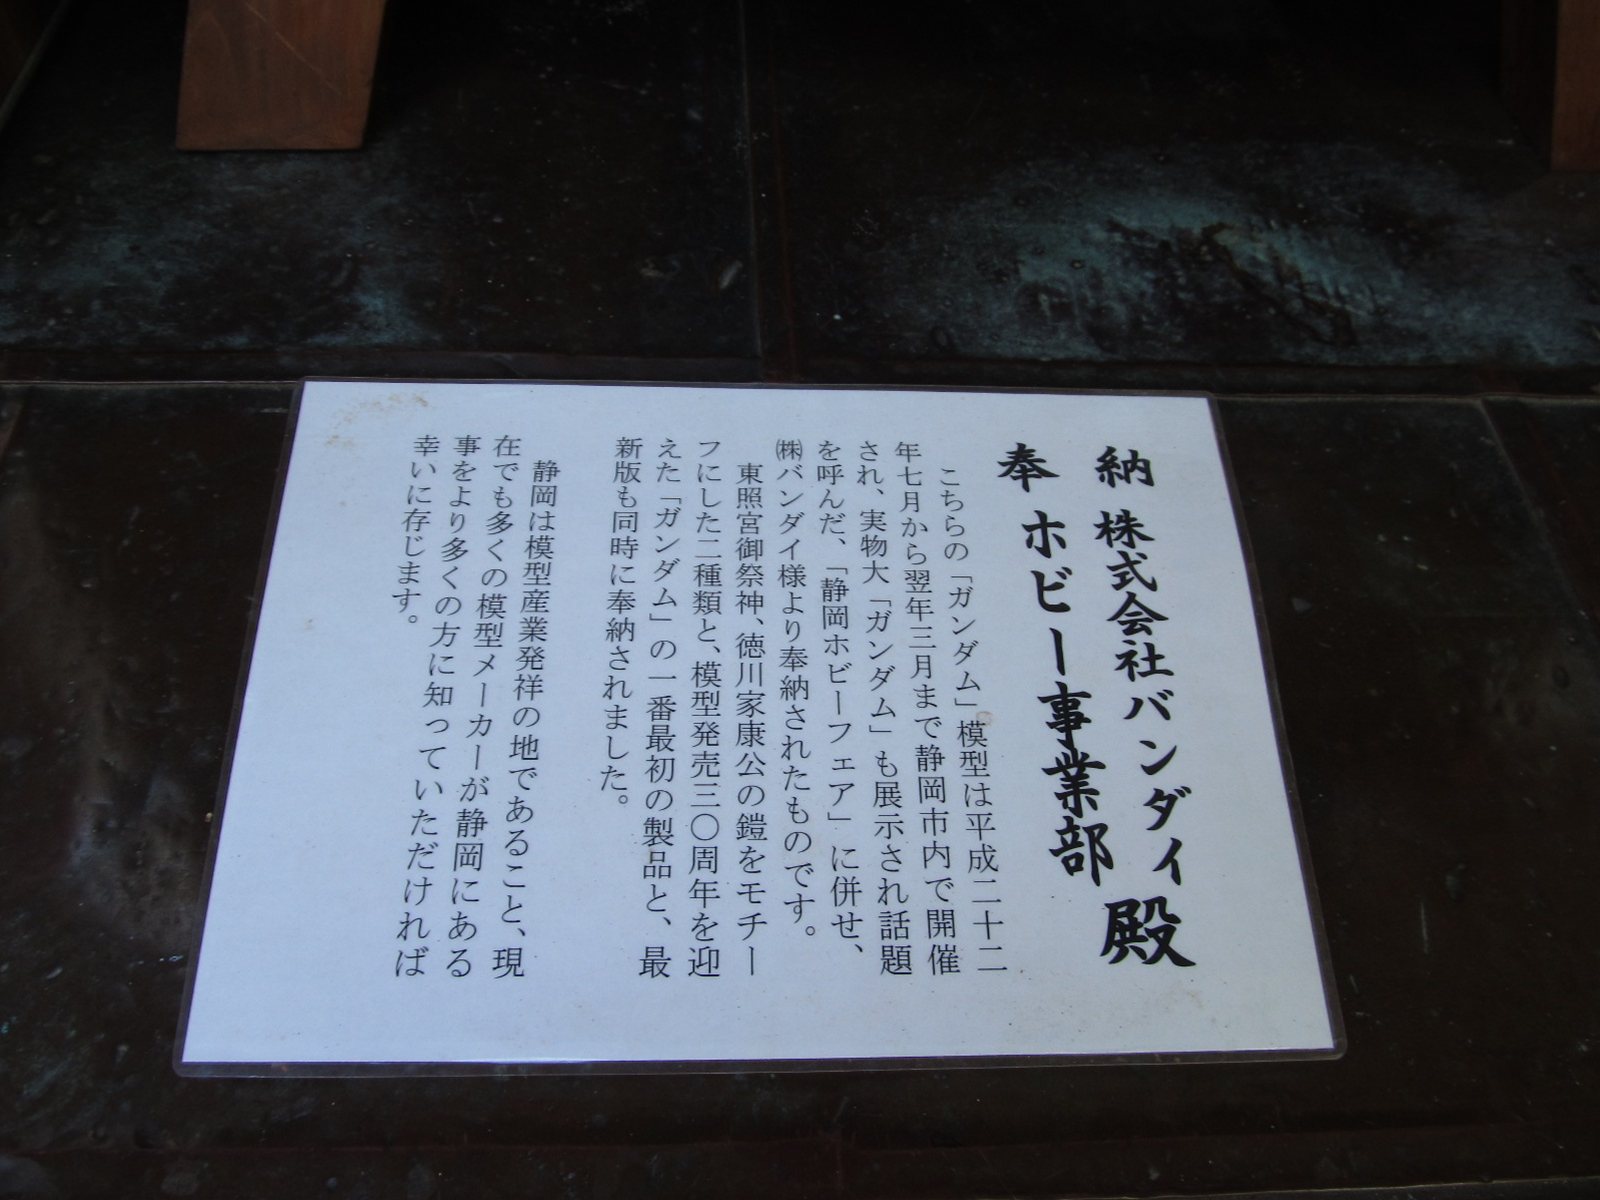 奉納 株式会社バンダイ ホビー事業部 殿
こちらの「ガンダム」模型は平成二十二
年七月から翌年三月まで静岡市内で開催
され、実物大「ガンダム」も展示され話題
を呼んだ、「静岡ホビーフェア」に併せ、
㈱バンダイ様より奉納されたものです。
東照宮御祭神、徳川家康公の鎧をモチー
フにした二種類と、模型発売三〇周年を迎
えた「ガンダム」の一番最初の製品と、最
新版も同時に奉納されました。
静岡は模型産業発祥の地であること、現
在でも多くの模型メーカーが静岡にある
事をより多くの方に知っていただければ
幸いに存じます。